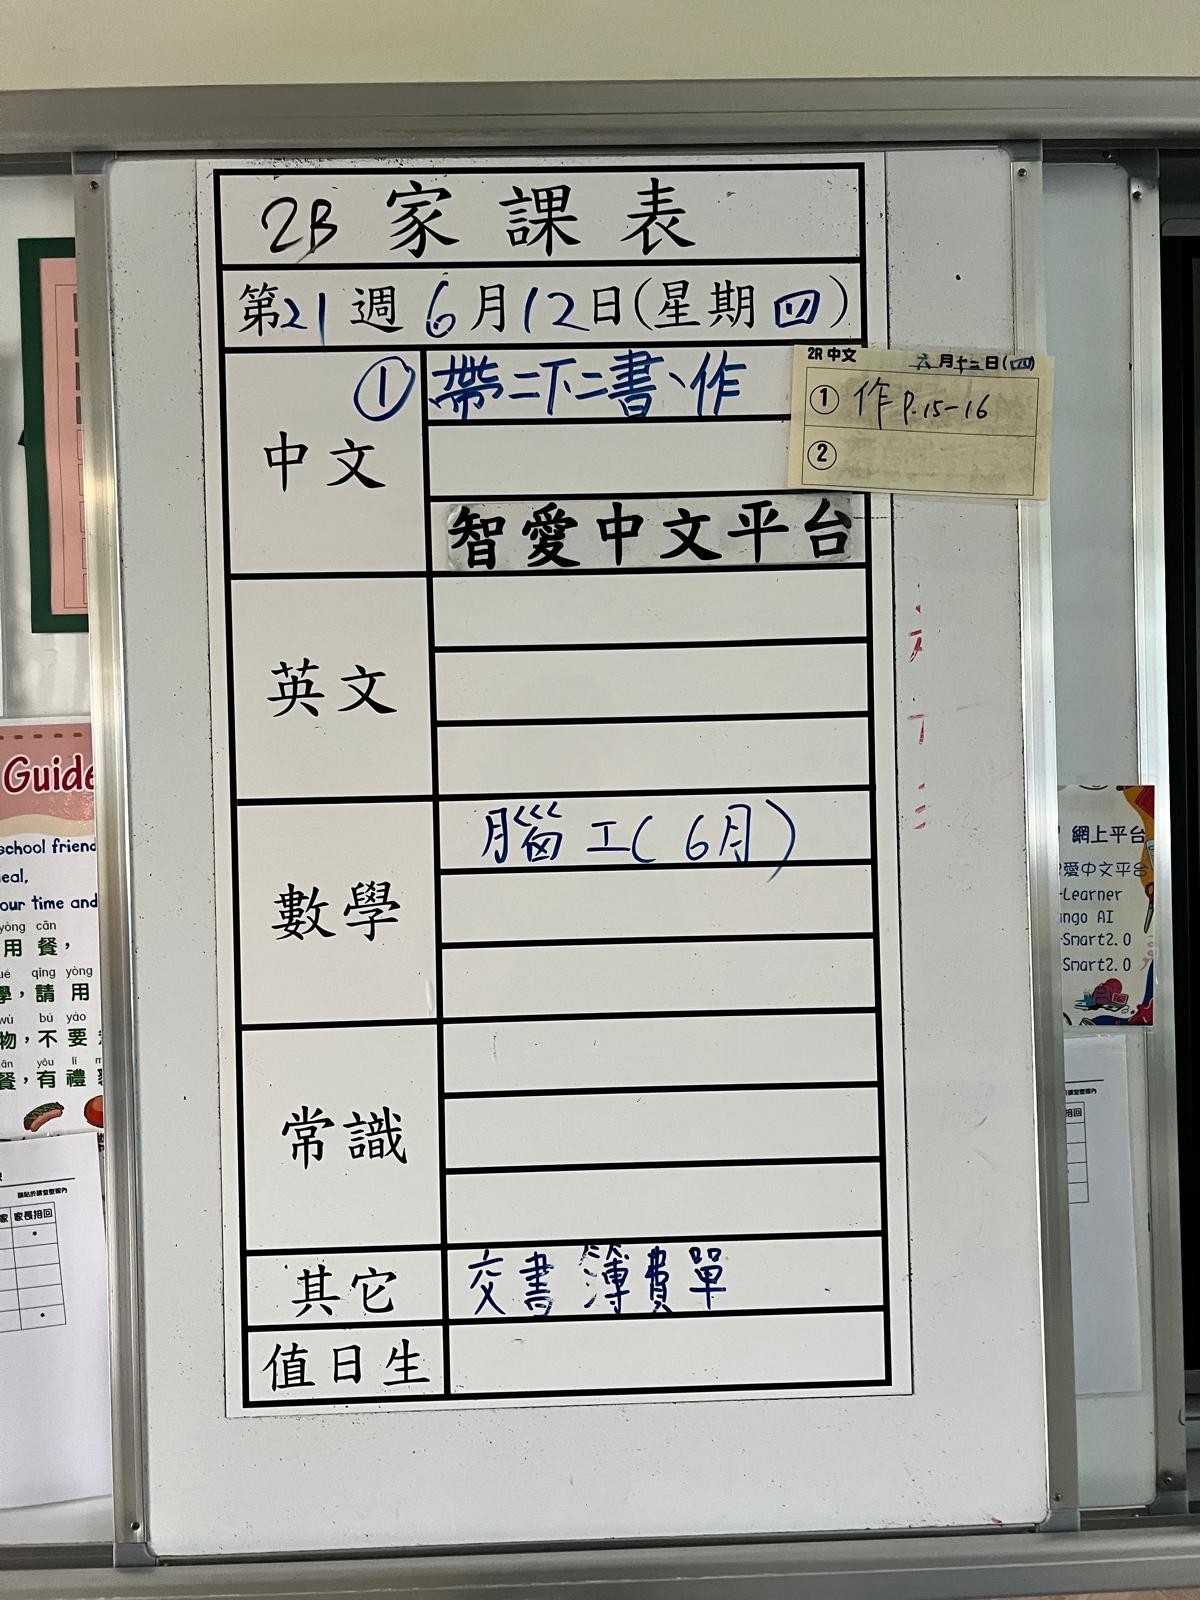 2B 家課表
第21週6月12日(星期四)
中文
① 帶二下二書、作
智愛中文平台
2R 中文 六月十二日(四)
① 作 P.15-16
②
英文
數學
腦工(6月)
常識
其它
交書簿費單
值日生
Guide
school friend
eal,
our time and
yòng cān
用餐,
qǐng yòng
學,請用
wù bú yào
物,不要
yǒu lǐ
餐,有禮
家長招回
網上平台
愛中文平台
Learner
ngo AI
Smart2.0
Smart2.0